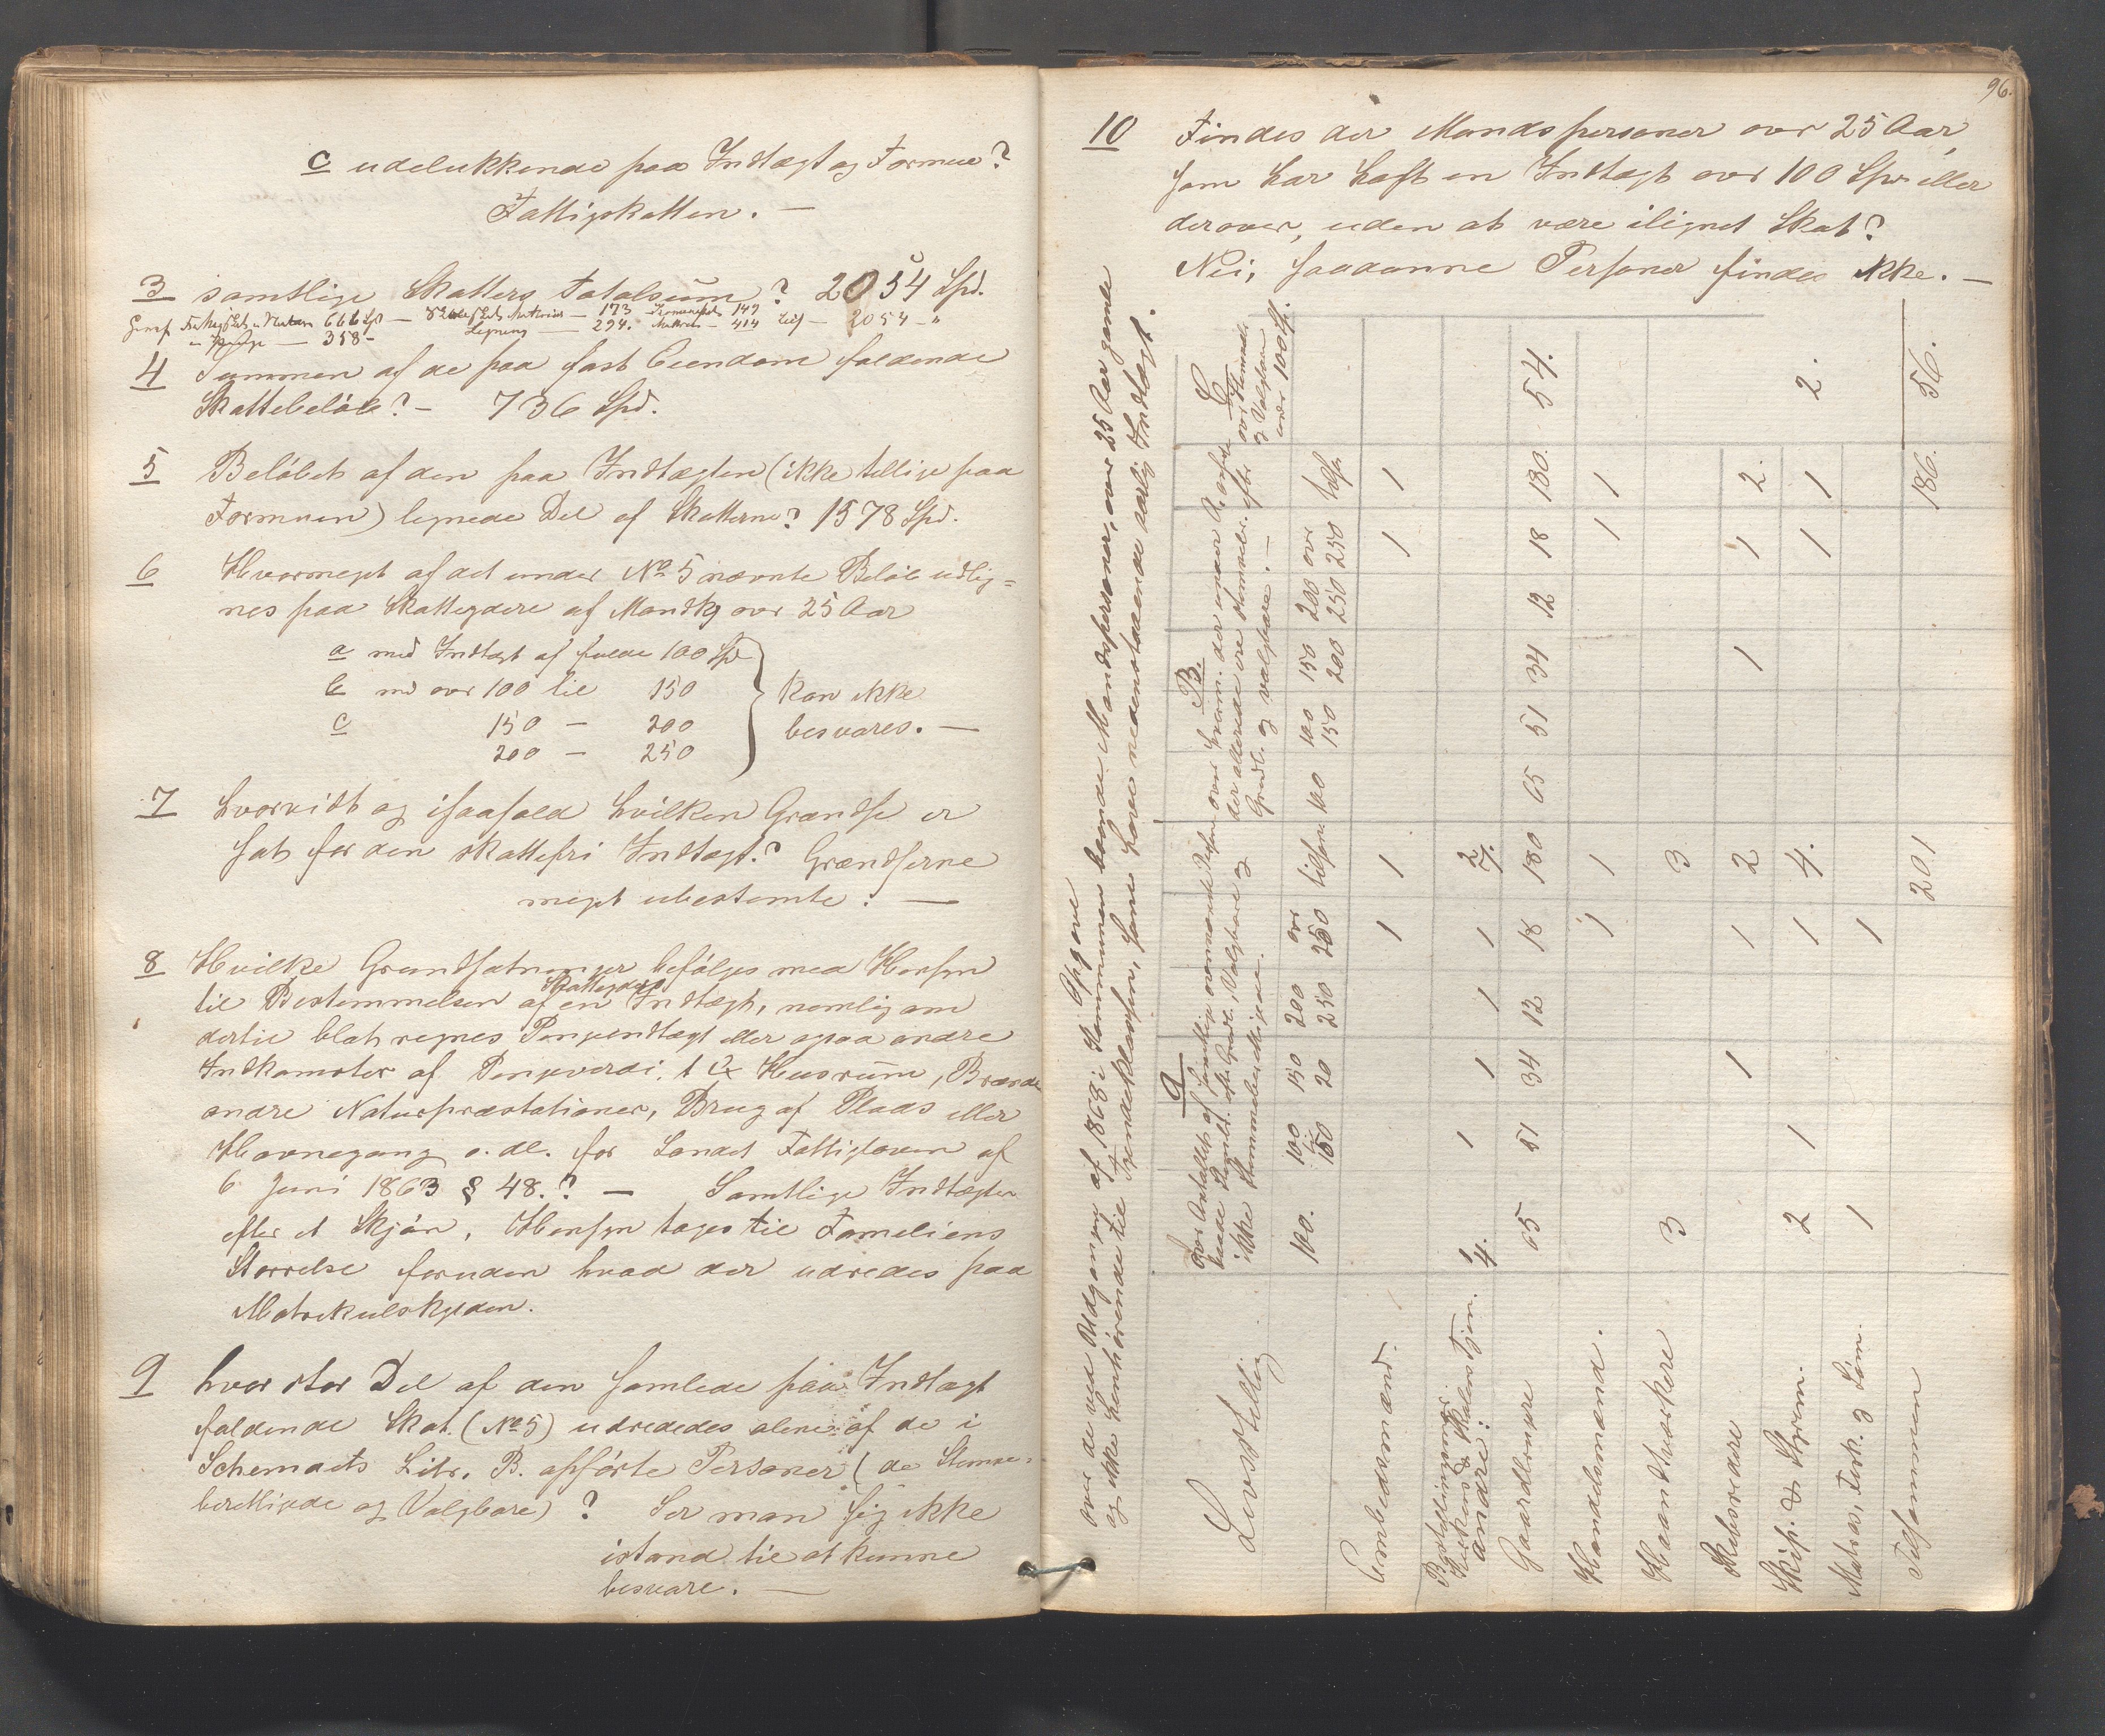 c udelukkende paa Indtægt og Formue?
Fattigskatten. —
3 samtlige Skatters Totalsum? 2054 Spd.
666 Spd — 173 — 149
358 — 294. Matrikul — 414 tils — 2054 - "
4 Summen af de paa fast Eiendom faldende
Skattebeløb? — 736 Spd.
5 Beløbet af den paa Indtægten (ikke tillige paa
Formuen) lignede Del af Skatterne? 1578 Spd.
6 Hvormeget af det under No 5 nævnte Beløb udlig=
nes paa Skatteydere af Mandkj over 25 Aar
a med Indtægt af fulde 100 Spd
b md over 100 til 150
c 150 — 200
200 — 250
kan ikke
besvares. —
7 hvorvidt og isaafald hvilken Grændse er
sat for den skattefri Indtægt.? Grændserne
meget ubestemte. —
8 Hvilke Grundsætninger befølges med Hensyn
til Bestemmelsen af en Skatteyders Indtægt, nemlig om
dertil blot regnes Pengeindtægt eller ogsaa andre
Indkomster af Pengeverdi. t Ex Huusrum, Brænde
andre Naturpræstationer, Brug af Plads eller
Havnegang o. dl. for Landet Fattigloven af
6 Juni 1863 § 48.? — Samtlige Indtægter
efter et Skjøn, Hensyn tages til Fameliens
Størrelse foruden hvad der udredes paa
Matrikulskylden.
9 hvor stor Del af den samlede paa Indtægt
faldende Skat. (No 5) udrededes alene af de i
Schemaets Litr. B. opførte Personer (de Stemme=
berettigede og Valgbare)? Ser man sig ikke
istand til at kunne
besvare. —
96.
10 Findes der Mandspersoner over 25 Aar,
som har havt en Indtægt over 100 Spd eller
derover, uden at være ilignet Skat?
Nei, saadanne Personer findes ikke. —
Opgave
over de ved Udgangen af 1868 i Kommunen boende Mandspersoner, over 25 Aar gamle
og ikke henhørende til Tjendeklassen, som have nedenstaaende aarlig Indtægt.
Livsstilling
a
over Antallet af samtlige ovennævnte Personer
baade Stemmb. efter Grundl., Valgbare og
ikke Stemmeberettigede.
100. 100 150 150 20 200 250 over 250 tilsam:
B.
over hvorm. der under A. opførte
der allerede ere stemmeber. efter
Grndl. og valgbare. —
100 100 150 150 200 200 250 over 250 tilsp.
C
over Stemmeb.
og Valgbare
under 100 Sp.
Embedsmænd. 1 1 1 1
Bestillingsmænd
Kirkens & Skolens Tjen.
andre: 1 4. 1 1 1 1 2 7.
Gaardbrugere 65 51 34 12 18 180 65 51 34 12 18 180. 54.
Handelsmænd. 1 1 1 1
Haandtværkere 3 3
Skibsredere 1 1 2 1 1 2.
Skip. & Styrm. 2 1 1 4. 1 1 2.
Matros, Fisk. & Løm. 1 1
Tilsammen 201 186. 56.